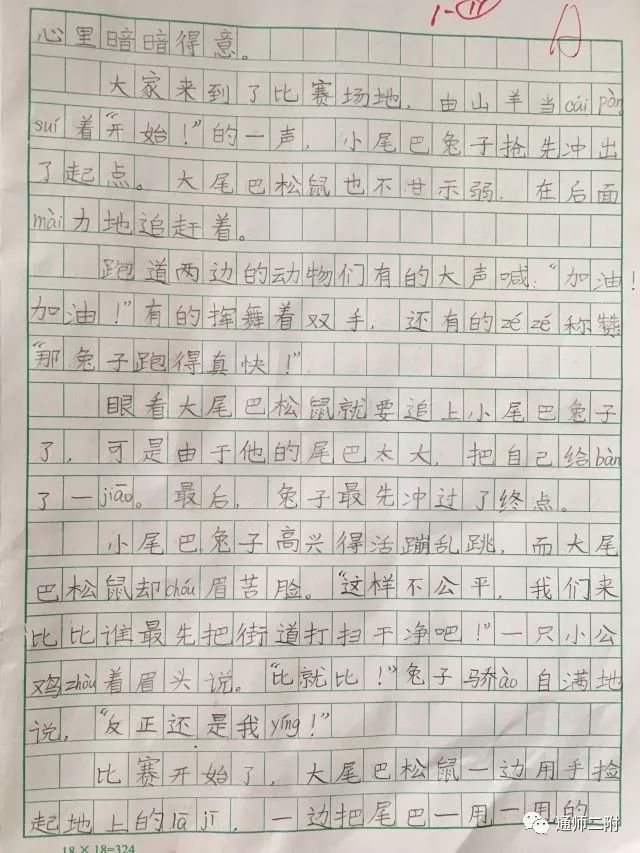 1-(14) A
心里暗暗得意。
大家来到了比赛场地，由山羊当cái pàn，
suí着“开始！”的一声，小尾巴兔子抢先冲出
了起点。大尾巴松鼠也不甘示弱，在后面
mài力地追赶着。
跑道两边的动物们有的大声喊：“加油！
加油！”有的挥舞着双手，还有的zé zé称赞
“那兔子跑得真快！”
眼看大尾巴松鼠就要追上小尾巴兔子
了，可是由于他的尾巴太大，把自己给bàn
了一jiāo。最后，兔子最先冲过了终点。
小尾巴兔子高兴得活蹦乱跳，而大尾
巴松鼠却chóu眉苦脸。“这样不公平，我们来
比比谁最先把街道打扫干净吧！”一只小公
鸡zhòu着眉头说。“比就比！”兔子骄ào自满地
说，“反正还是我yíng！”
比赛开始了，大尾巴松鼠一边用手捡
起地上的lā jī，一边把尾巴一甩一甩的
18×18=324
通师二附